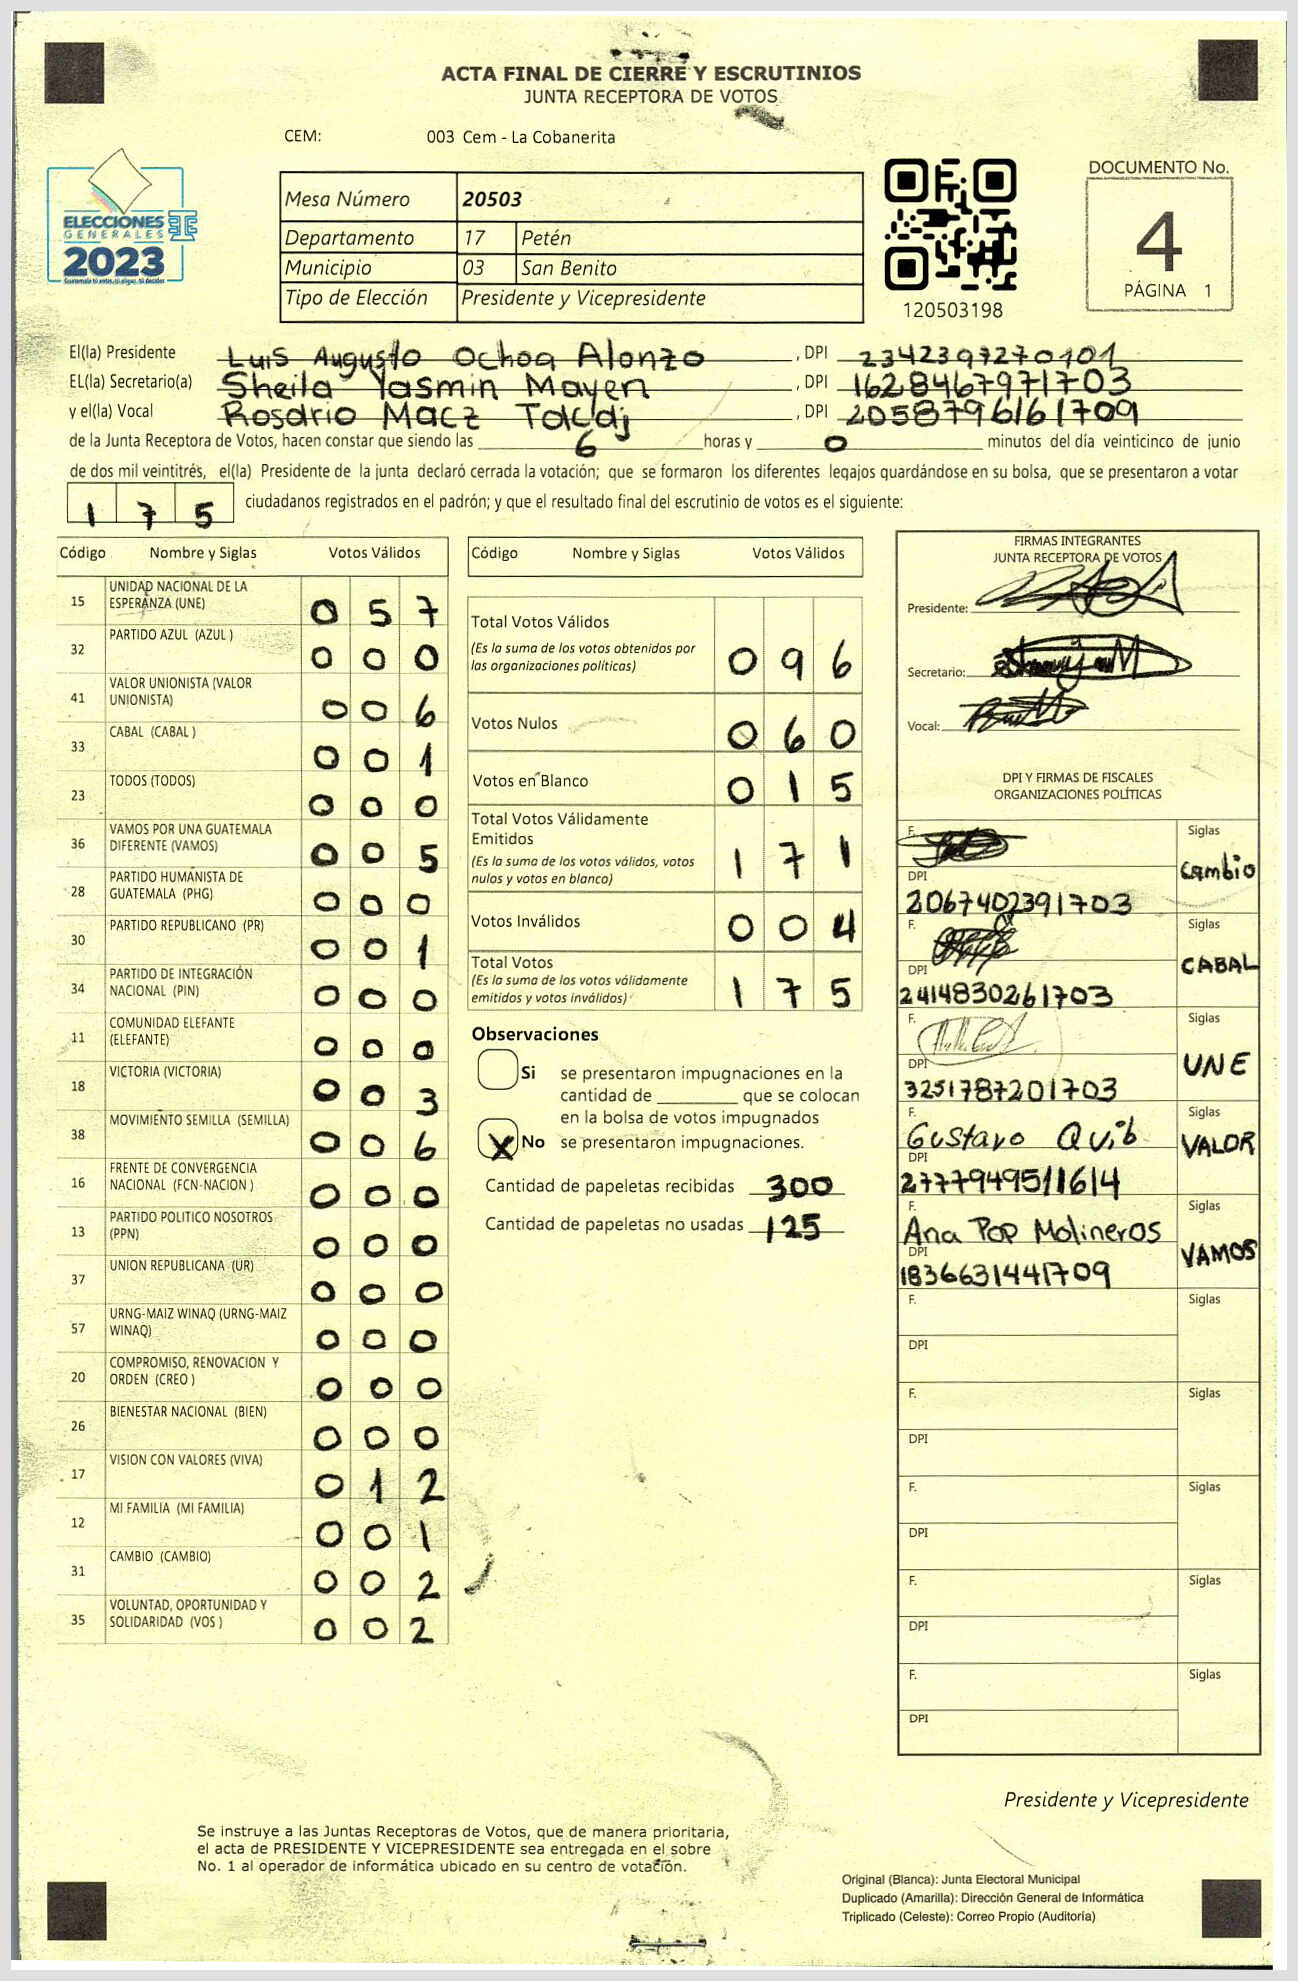 ACTA FINAL DE CIERRE Y ESCRUTINIOS
JUNTA RECEPTORA DE VOTOS
CEM: 003 Cem - La Cobanerita
ELECCIONES
GENERALES
2023
Mesa Número 20503
Departamento 17 Petén
Municipio 03 San Benito
Tipo de Elección Presidente y Vicepresidente
120503198
DOCUMENTO No.
4
PÁGINA 1
El(la) Presidente Luis Augusto Ochoa Alonzo , DPI 2342397270101
EL(la) Secretario(a) Sheila Yasmin Mayen , DPI 1628467971703
y el(la) Vocal Rosario Macz , DPI 2058796161709
de la Junta Receptora de Votos, hacen constar que siendo las 6 horas y 0 minutos del día veinticinco de junio
de dos mil veintitrés, el(la) Presidente de la junta declaró cerrada la votación; que se formaron los diferentes legajos guardándose en su bolsa, que se presentaron a votar
1 7 5 ciudadanos registrados en el padrón; y que el resultado final del escrutinio de votos es el siguiente:
Código Nombre y Siglas Votos Válidos
15 UNIDAD NACIONAL DE LA ESPERANZA (UNE) 0 5 7
32 PARTIDO AZUL (AZUL ) 0 0 0
41 VALOR UNIONISTA (VALOR UNIONISTA) 0 0 6
33 CABAL (CABAL ) 0 0 1
23 TODOS (TODOS) 0 0 0
36 VAMOS POR UNA GUATEMALA DIFERENTE (VAMOS) 0 0 5
28 PARTIDO HUMANISTA DE GUATEMALA (PHG) 0 0 0
30 PARTIDO REPUBLICANO (PR) 0 0 1
34 PARTIDO DE INTEGRACIÓN NACIONAL (PIN) 0 0 0
11 COMUNIDAD ELEFANTE (ELEFANTE) 0 0 0
18 VICTORIA (VICTORIA) 0 0 3
38 MOVIMIENTO SEMILLA (SEMILLA) 0 0 6
16 FRENTE DE CONVERGENCIA NACIONAL (FCN-NACION ) 0 0 0
13 PARTIDO POLITICO NOSOTROS (PPN) 0 0 0
37 UNION REPUBLICANA (UR) 0 0 0
57 URNG-MAIZ WINAQ (URNG-MAIZ WINAQ) 0 0 0
20 COMPROMISO, RENOVACION Y ORDEN (CREO ) 0 0 0
26 BIENESTAR NACIONAL (BIEN) 0 0 0
17 VISION CON VALORES (VIVA) 0 1 2
12 MI FAMILIA (MI FAMILIA) 0 0 1
31 CAMBIO (CAMBIO) 0 0 2
35 VOLUNTAD, OPORTUNIDAD Y SOLIDARIDAD (VOS ) 0 0 2
Código Nombre y Siglas Votos Válidos
Total Votos Válidos 0 9 6
(Es la suma de los votos obtenidos por
las organizaciones políticas)
Votos Nulos 0 6 0
Votos en Blanco 0 1 5
Total Votos Válidamente
Emitidos 1 7 1
(Es la suma de los votos válidos, votos
nulos y votos en blanco)
Votos Inválidos 0 0 4
Total Votos 1 7 5
(Es la suma de los votos válidamente
emitidos y votos inválidos)
Observaciones
Si se presentaron impugnaciones en la
cantidad de ________ que se colocan
en la bolsa de votos impugnados
X No se presentaron impugnaciones.
Cantidad de papeletas recibidas 300
Cantidad de papeletas no usadas 125
FIRMAS INTEGRANTES
JUNTA RECEPTORA DE VOTOS
Presidente:
Secretario:
Vocal:
DPI Y FIRMAS DE FISCALES
ORGANIZACIONES POLÍTICAS
F. Siglas Cambio
DPI 2067402391703
F. Siglas CABAL
DPI 2414830261703
F. Siglas UNE
DPI 3251787201703
F. Gustavo Quib Siglas VALOR
DPI 2777949511614
F. Ana Pop Molineros Siglas VAMOS
DPI 1836631441709
F. Siglas
DPI
F. Siglas
DPI
F. Siglas
DPI
F. Siglas
DPI
F. Siglas
DPI
Presidente y Vicepresidente
Se instruye a las Juntas Receptoras de Votos, que de manera prioritaria,
el acta de PRESIDENTE Y VICEPRESIDENTE sea entregada en el sobre
No. 1 al operador de informática ubicado en su centro de votación.
Original (Blanca): Junta Electoral Municipal
Duplicado (Amarilla): Dirección General de Informática
Triplicado (Celeste): Correo Propio (Auditoría)